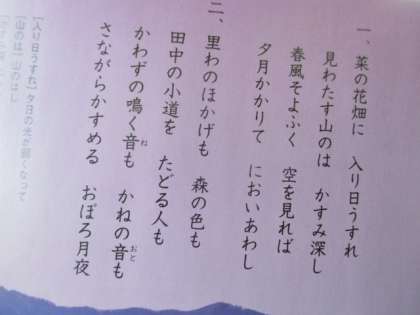 一、菜の花畑に　入り日うすれ
見わたす山のは　かすみ深し
春風そよふく　空を見れば
夕月かかりて　においあわし
二、里わのほかげも　森の色も
田中の小道を　たどる人も
かわずの鳴く音も　かねの音も
ね
おと
さながらかすめる　おぼろ月夜
［入り日うすれ］夕日の光が弱くなって
［山のは］山のはし